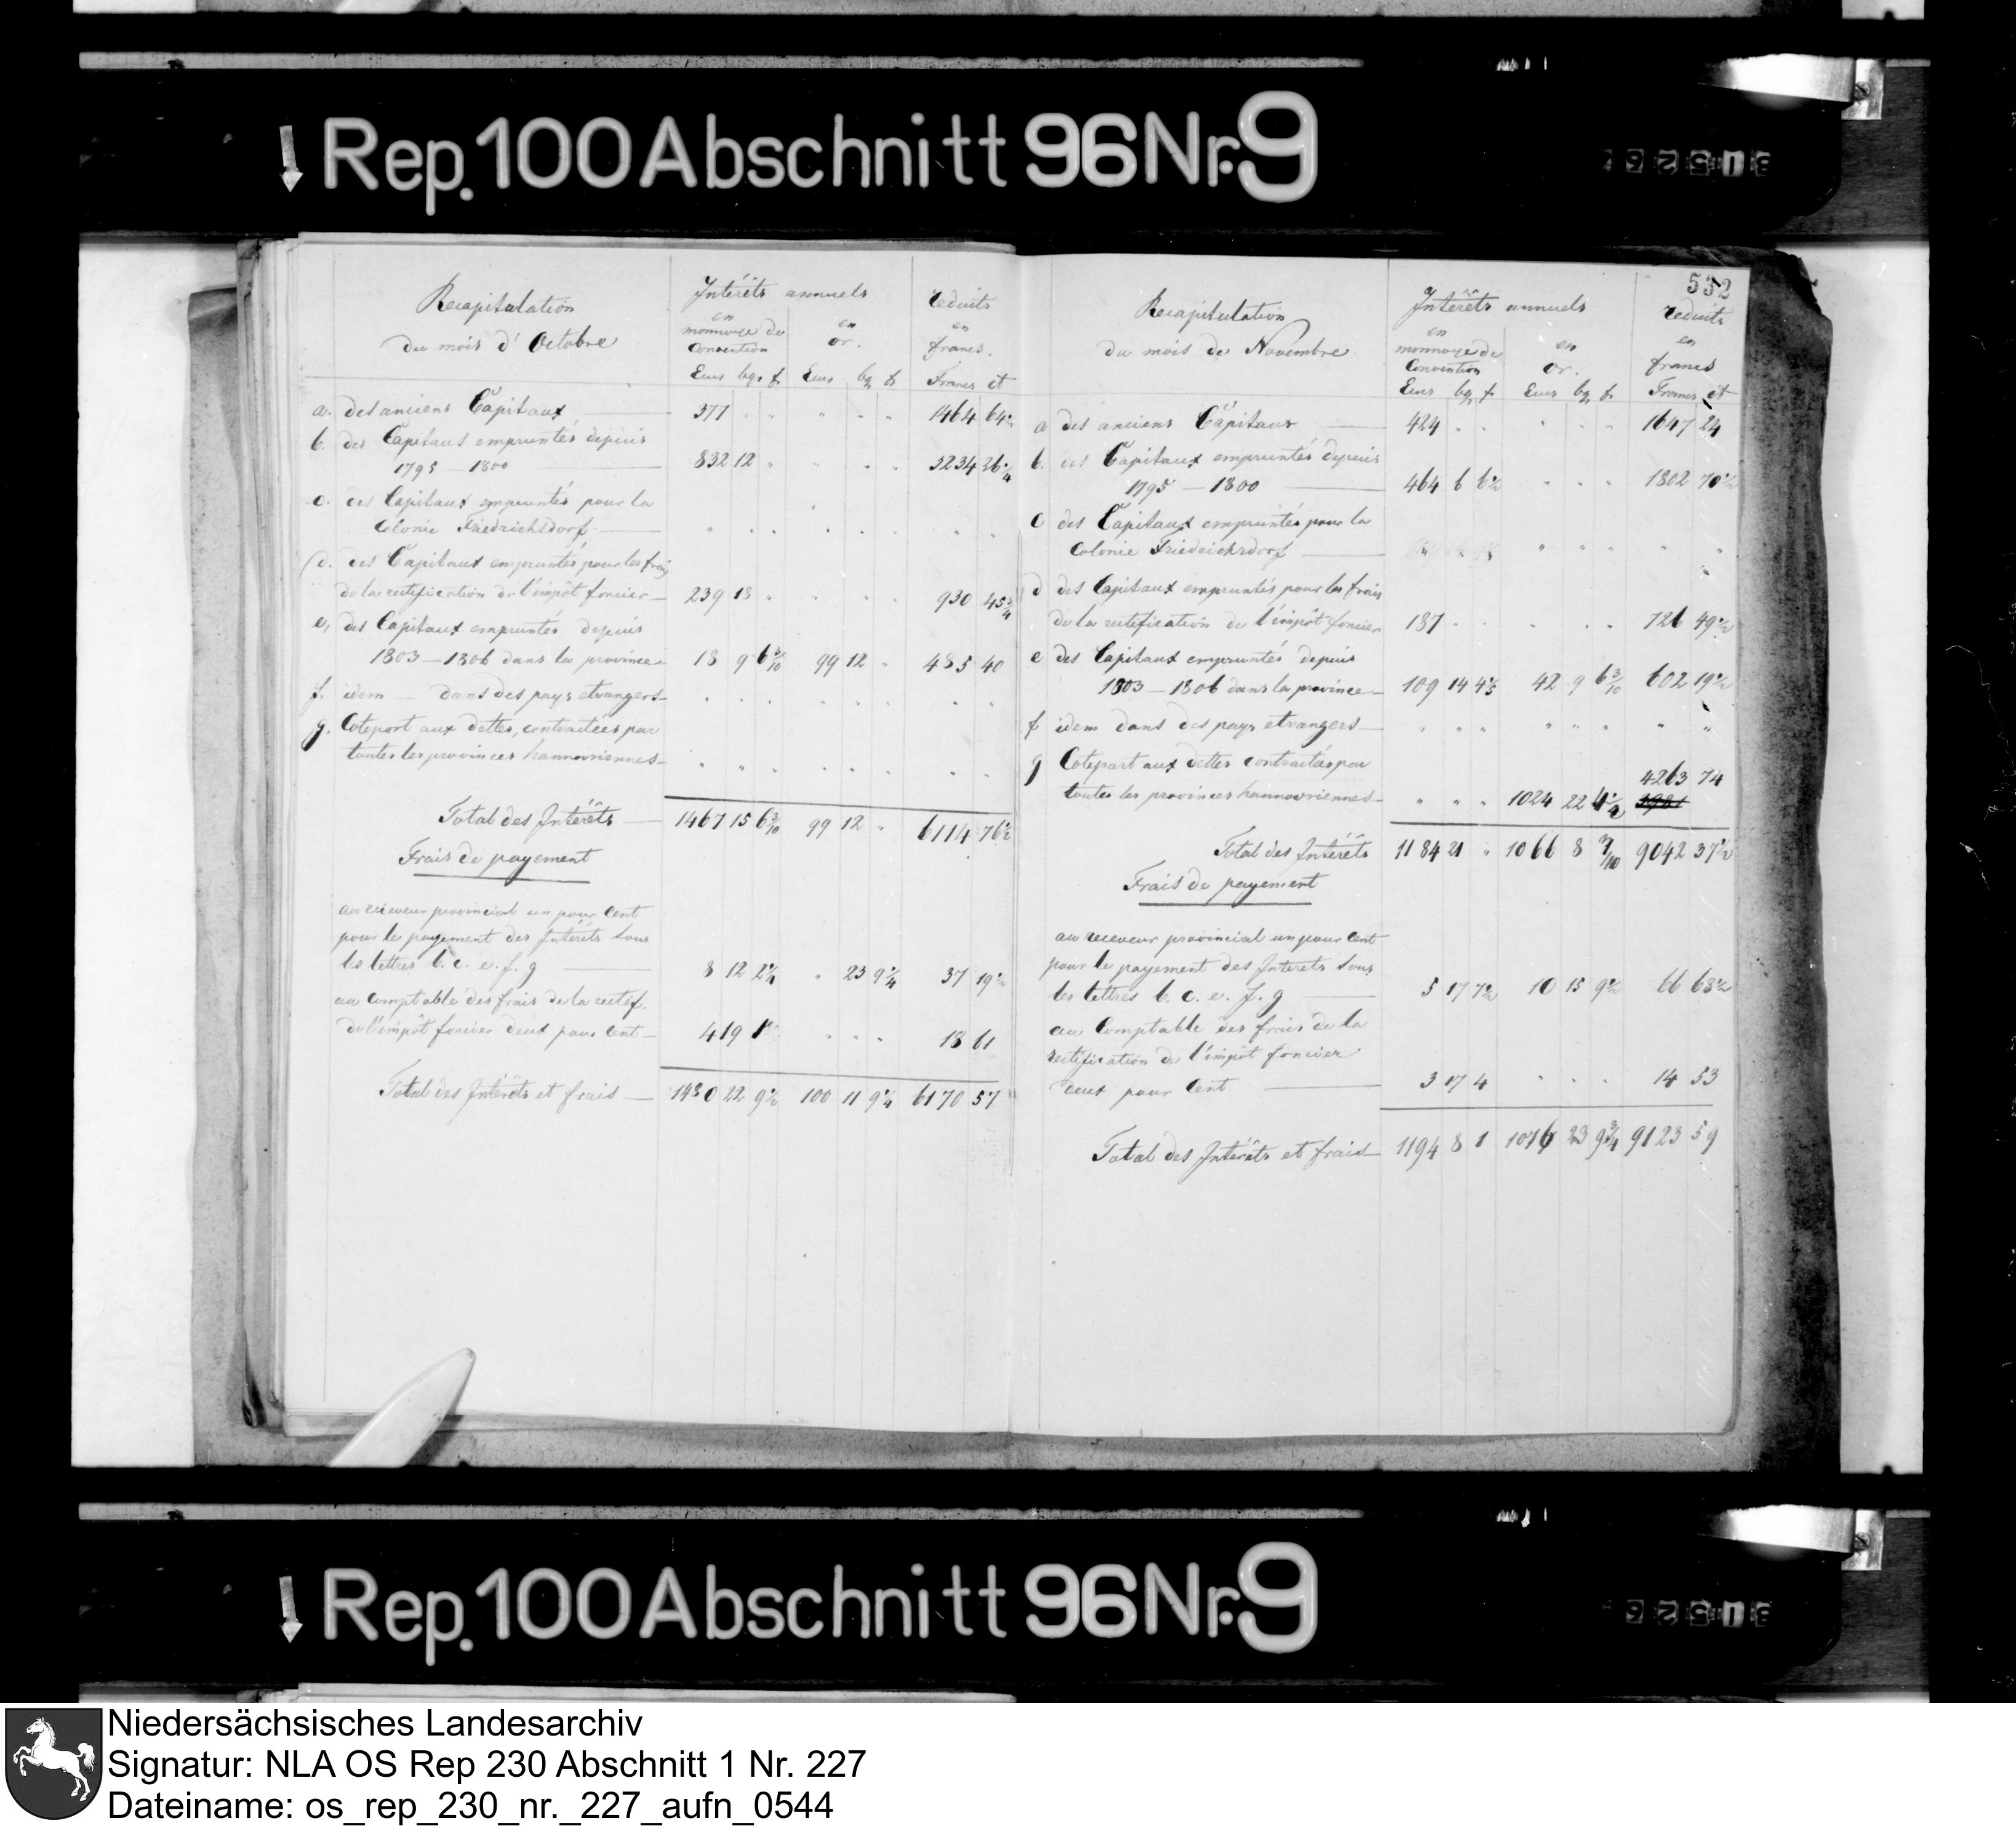 Rep. 100 Abschnitt 96 Nr. 9
532
Recapitulation
du mois d'Octobre
Intérêts annuels
en monnoye de Convention
en or.
reduits en francs.
Ecus bgr ₰ Ecus bg ₰ Francs ct
a. des anciens Capitaux 377 " " " " " 1464 64½
b. des Capitaux empruntés depuis
1795 — 1800 — 832 12 " " " " 3234 26¼
c. des Capitaux empruntés pour la
Colonie Friedrichsdorf — " " " " " " " "
d. des Capitaux empruntés pour les frais
de la rectification de l'impôt foncier — 239 18 " " " " 930 45¾
e, des Capitaux empruntés depuis
1803 — 1806 dans la province — 18 9 6 3/10 99 12 " 485 40
f. idem — dans des pays etrangers — " " " " " " " "
g. Cotepart aux dettes, contractées par
toutes les provinces hannovriennes — " " " " " " " "
Total des Intérêts — 1467 15 6 3/10 99 12 " 6114 76½
Frais de payement
au receveur provincial un pour Cent
pour le payement des Intérêts sous
les lettres b. c. e. f. g — 8 12 2¼ " 23 9¼ 37 19½
au comptable des frais de la rectif.
de l'impôt foncier deux pour Cent — 4 19 1 " " " 18 61
Total des Intérêts et frais — 1480 22 9½ 100 11 9¼ 6170 57
Recapitulation
du mois de Novembre
Intérêts annuels
en monnoye de Convention
en or.
reduits en francs
Ecus bg ₰ Ecus bg ₰ Francs ct
a des anciens Capitaux — 424 " " " " " 1647 24
b. des Capitaux empruntés depuis
1795 — 1800 — 464 6 6½ " " " 1802 70½
c des Capitaux empruntés pour la
Colonie Friedrichsdorf — " " " " "
d des Capitaux empruntés pour les frais
de la rectification de l'impôt foncier 187 " " " " " 726 49½
e des Capitaux empruntés depuis
1803 — 1806 dans la province — 109 14 4⅕ 42 9 6 3/10 602 19½
f idem dans des pays etrangers — " " " " " " " "
g Cotepart aux dettes contractées par
4263 74
toutes les provinces hannovriennes — " " " 1024 22 4½
Total des Intérêts 1184 21 " 1066 8 7/10 9042 37½
Frais de payement
au receveur provincial un pour Cent
pour le payement des Interets sous
les lettres b. c. e. f. g — 5 17 7½ 10 15 9½ 66 68½
au Comptable des frais de la
rectification de l'impôt foncier
deux pour Cent — 3 17 4 " " " 14 53
Total des Intérêts et frais — 1194 8 1 1076 23 9¾ 9123 59
Rep. 100 Abschnitt 96 Nr. 9
Niedersächsisches Landesarchiv
Signatur: NLA OS Rep 230 Abschnitt 1 Nr. 227
Dateiname: os_rep_230_nr._227_aufn_0544